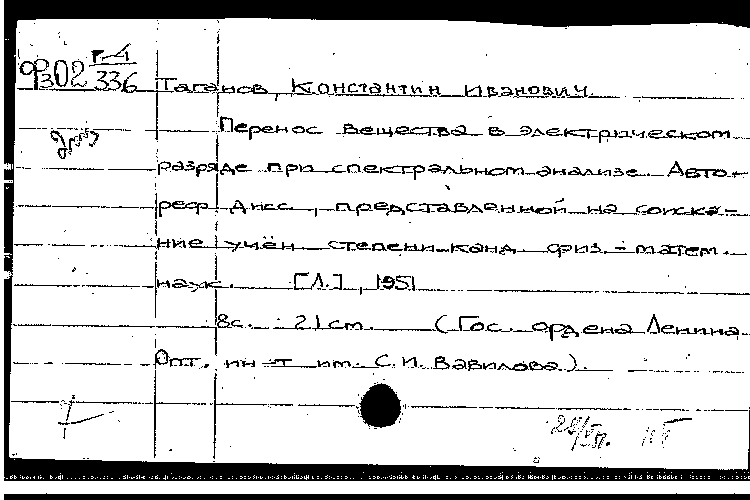 Г-4
Ф302 336
Таганов, Константин Иванович.
Перенос вещества в электрическом
разряде при спектральном анализе. Авто-
реф дисс., представленной на соиска-
ние учён. степени канд. физ.-матем.
наук. [Л.], 1951
8с. 21 см. (Гос. ордена Ленина
Опт. ин-т им. С.И. Вавилова).